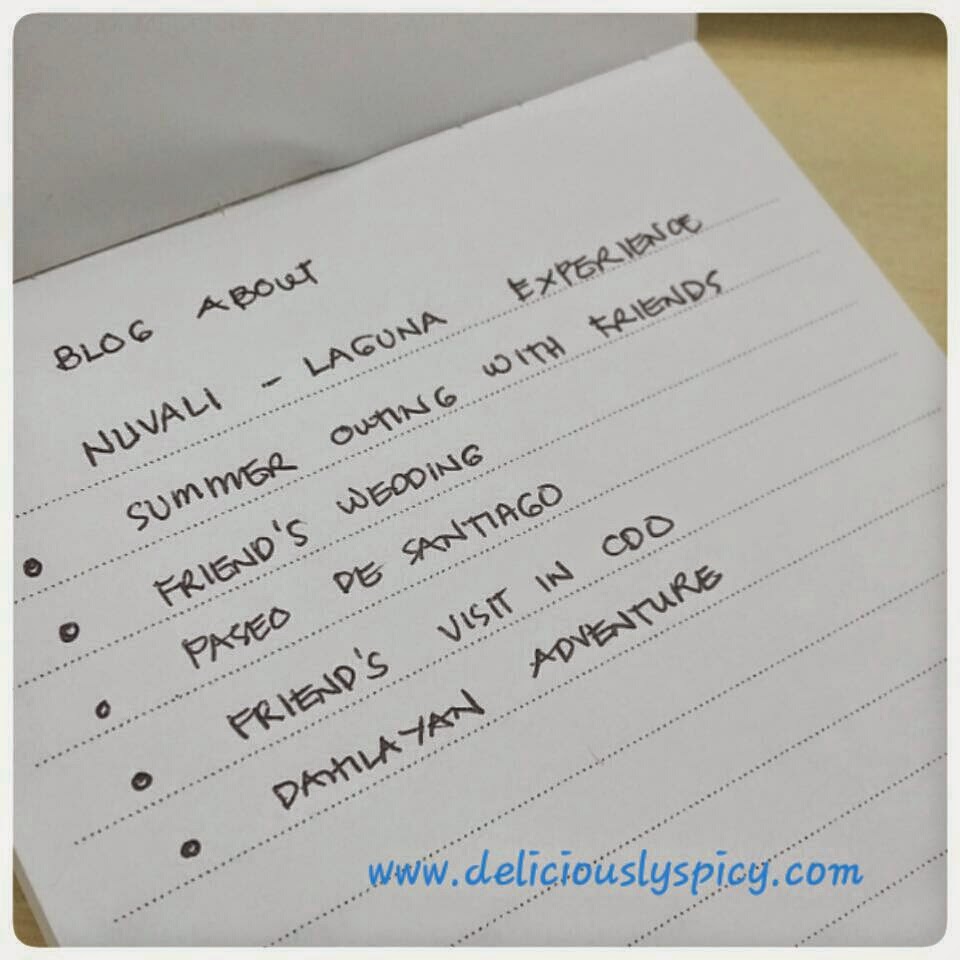 BLOG ABOUT
NUVALI - LAGUNA EXPERIENCE
• SUMMER OUTING WITH FRIENDS
• FRIEND'S WEDDING
• PASEO DE SANTIAGO
• FRIEND'S VISIT IN CDO
• DAHILAYAN ADVENTURE
www.deliciouslyspicy.com